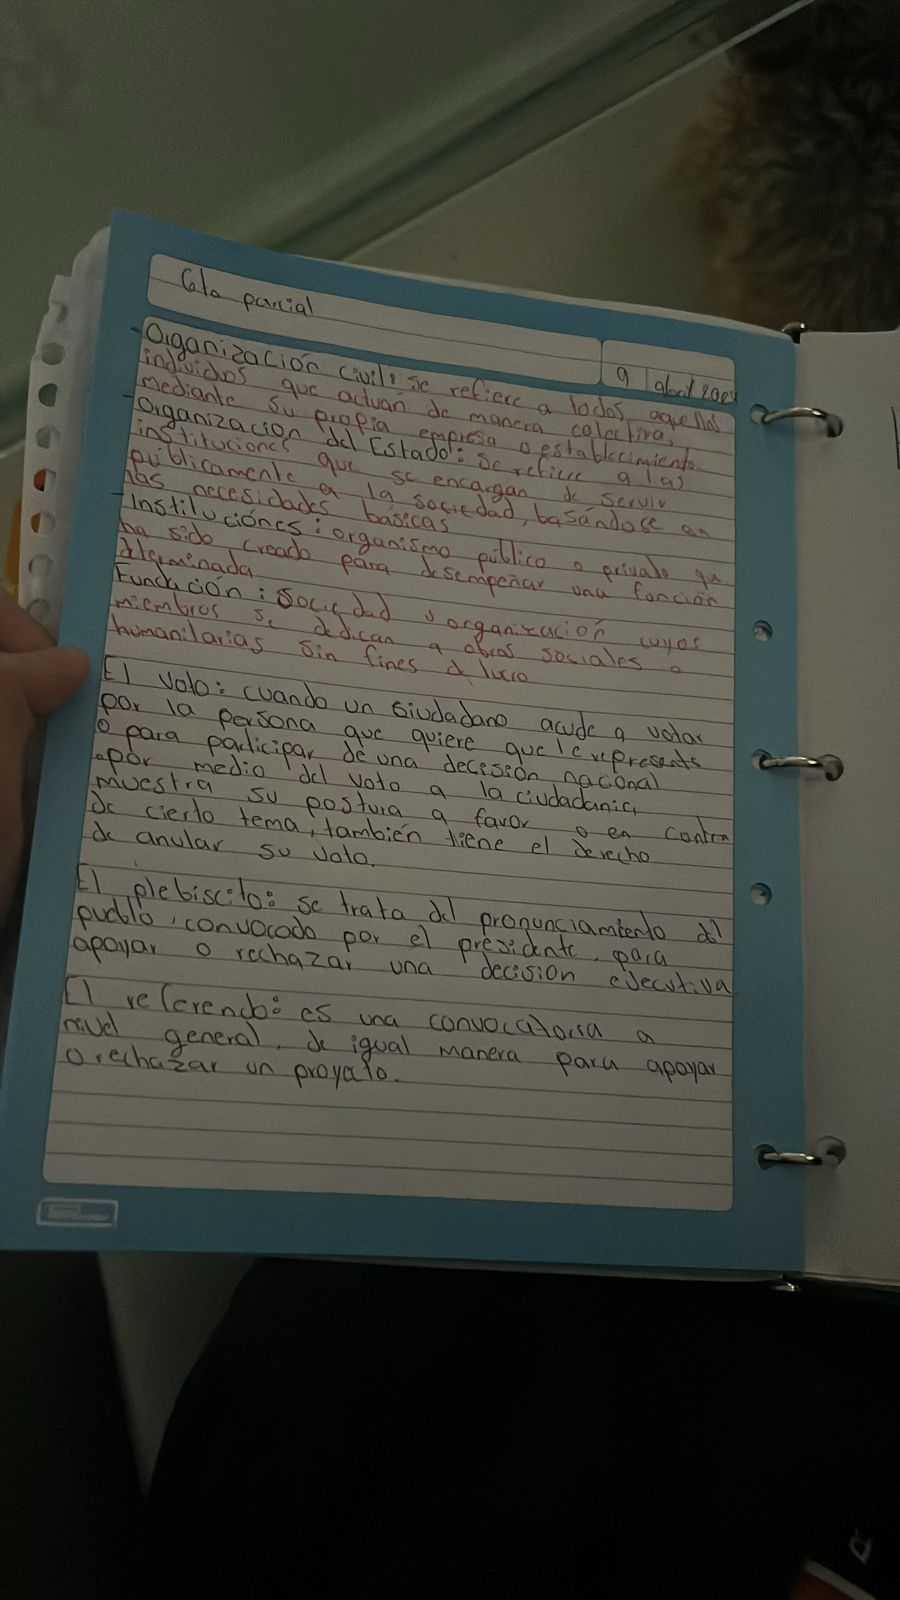 6to parcial
9 abril
Organización civil: se refiere a todos aquellos
individos que actuán de manera colectiva,
mediante su propia empresa o establecimiento
Organización del Estado: se refiere a las
instituciones que se encargan de servir
públicamente a la sociedad, basándose en
las necesidades básicas
Institucíónes: organismo público o privado que
ha sido creado para desempeñar una función
determinada
Fundación: Sociedad u organización cuyos
miembros se dedican a obras sociales o
humanitarias sin fines de lucro
El voto: cuando un ciudadano acude a votar
por la persona que quiere que le represente
o para participar de una decisión nacional
por medio del voto a la ciudadania,
muestra su postura a favor o en contra
de cierto tema, también tiene el derecho
de anular su voto.
El plebiscito: se trata del pronunciamiento del
pueblo, convocado por el presidente, para
apoyar o rechazar una decisión ejecutiva
El referendo: es una convocatoria a
nivel general, de igual manera para apoyar
o rechazar un proyato.